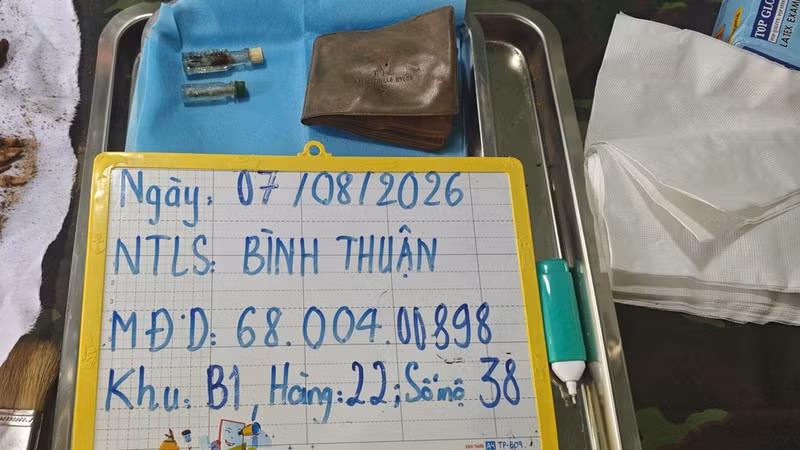 TOP GLO
LATEX EXAM
Ngày: 07/08/2026
NTLS: BÌNH THUẬN
MĐD: 68.004.00898
Khu: B1, Hàng: 22; Số mộ 38
A4 TP-B09